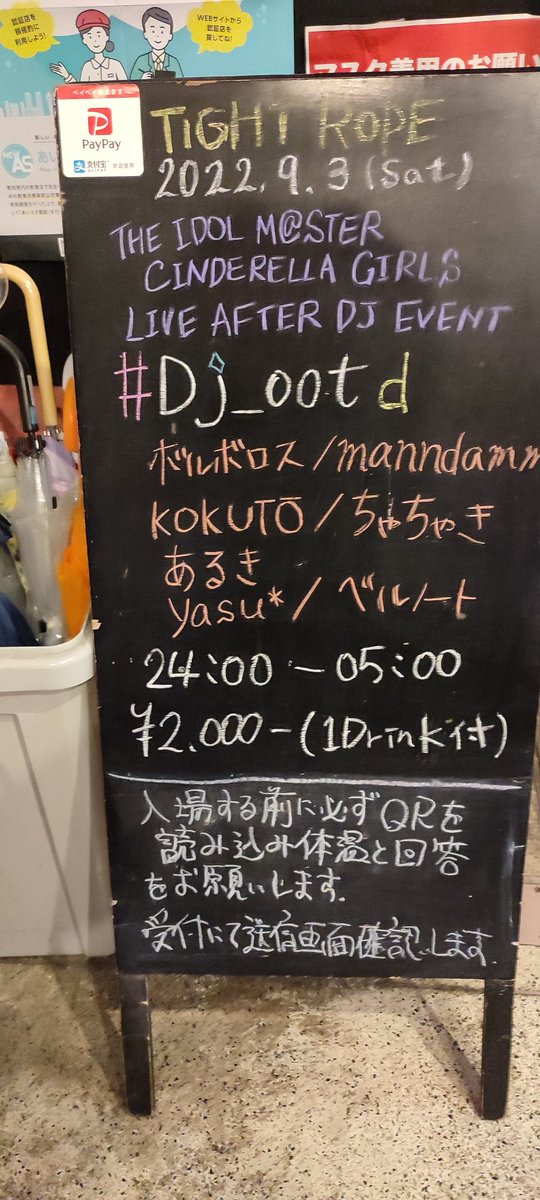 認証店を
積極的に
利用しよう!
WEBサイトから
認証店を
探してね!
マスク着用のお願い
PayPay
支付宝
ALIPAY
TIGHT ROPE
2022.9.3(Sat)
THE IDOL M@STER
CINDERELLA GIRLS
LIVE AFTER DJ EVENT
#Dj_ootd
ボルボロス/manndamm
KOKUTŌ/ちゃちゃき
あるき
yasu*/ベルノート
24:00-05:00
¥2.000-(1Drink付)
入場する前に必ずQRを
読み込み体温と回答
をお願いします.
受付にて送信画面確認します.